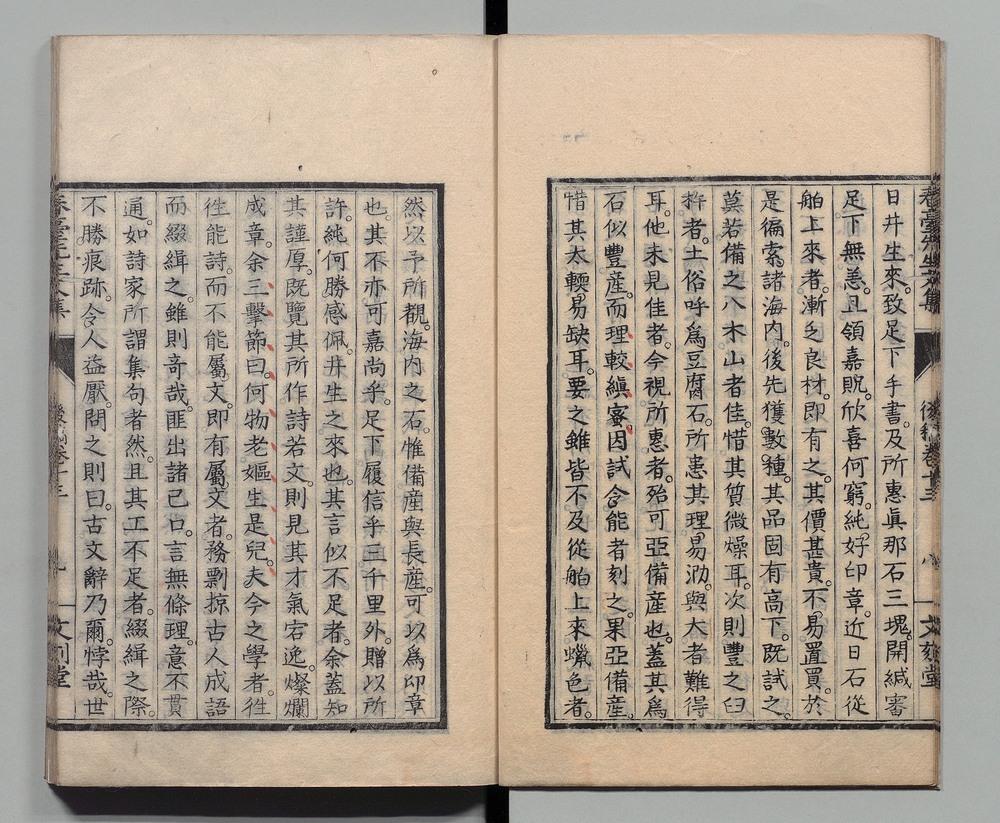 日井生來。致足下手書。及所惠眞那石三塊。開緘審
足下無恙。且領嘉貺。欣喜何窮。純好印章。近日石從
舶上來者。漸乏良材。即有之。其價甚貴。不易置買。於
是徧索諸海內。後先獲數種。其品固有高下。既試之。
莫若備之八木山者佳。惜其質微燥耳。次則豐之臼
杵者。土俗呼爲豆腐石。所恚其理易泐。與大者難得
耳。他未見佳者。今視所惠者。殆可亞備產也。蓋其爲
石似豐產。而理較縝密。因試令能者刻之。果亞備產。
惜其太輭。易缺耳。要之雖皆不及從舶上來蠟色者。
然以予所覩。海內之石。惟備產與長產。可以爲印章
也。其不亦可嘉尚乎。足下履信乎三千里外。贈以所
許。純何勝感佩。井生之來也。其言似不足者。余蓋知
其謹厚。既覽其所作詩若文。則見其才氣宕逸。燦爛
成章。余三擊節曰。何物老嫗生是兒。夫今之學者。徃
徃能詩。而不能屬文。即有屬文者。務剽掠古人成語
而綴緝之。雖則奇哉。匪出諸己口。言無條理。意不貫
通。如詩家所謂集句者然。且其工不足者。綴緝之際。
不勝痕跡。令人益厭。問之則曰。古文辭乃爾。悖哉。世
後稿卷十三
文刻堂
九
文刻堂